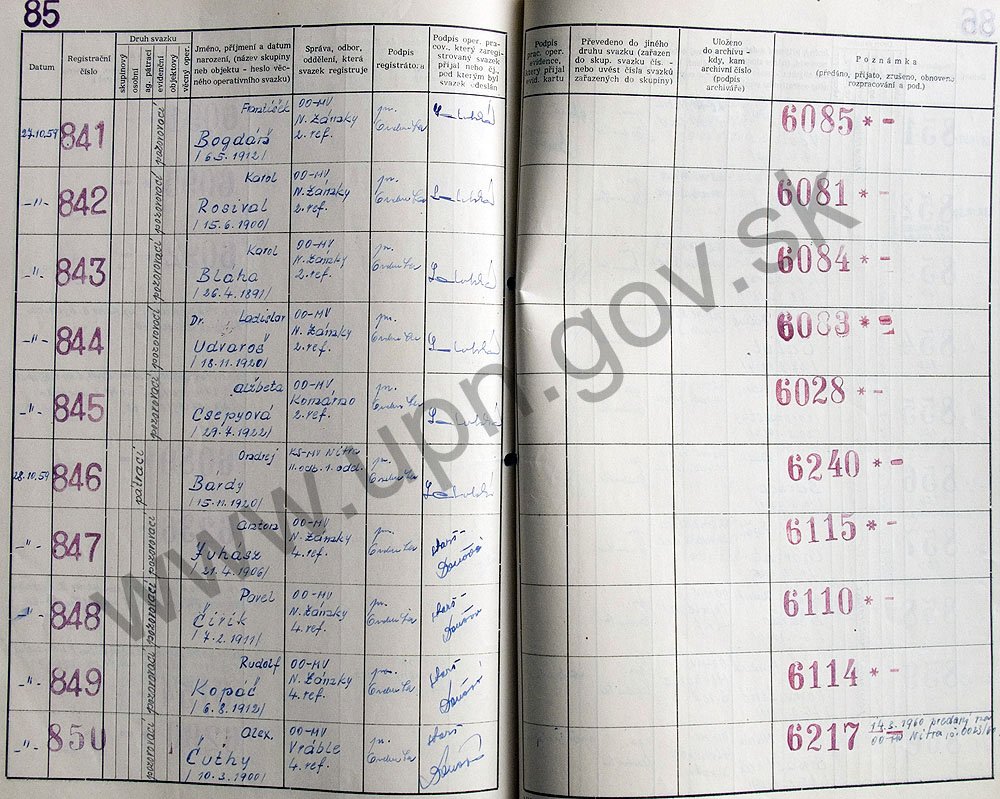 85
Datum
Registrační číslo
Druh svazku
skupinový
osobní
ag. pátrací
evidenční
objektový
věcný oper.
Jméno, příjmení a datum
narození, (název skupiny
neb objektu - heslo věc-
ného operativního svazku)
Správa, odbor,
oddělení, která
svazek registruje
Podpis
registrátora
Podpis oper. pra-
cov., který zareg-
istrovaný svazek
přijal nebo čj.,
pod kterým byl
svazek odeslán
Podpis
prac. oper.
evidence,
který přijal
evid. kartu
Převedeno do jiného
druhu svazku (zařazen
do skup. svazku čís. -
nebo uvést čísla svazků
zařazených do skupiny)
Uloženo
do archivu -
kdy, kam
archivní číslo
(podpis
archiváře)
Poznámka
(předáno, přijato, zrušeno, obnoveno
rozpracování a pod.)
27.10.59 841 pozorovací František Bogdáň /6.5.1912/ OO-MV N. Zámky 2. ref. 6085 * -
-"- 842 pozorovací Karol Rosival /15.6.1900/ OO-MV N. Zámky 2. ref. 6081 * -
-"- 843 pozorovací Karol Bláha /26.4.1891/ OO-MV N. Zámky 2. ref. 6084 * -
-"- 844 pozorovací Dr. Ladislav Udvaroš /18.11.1920/ OO-MV N. Zámky 2. ref. 6083 * -
-"- 845 pozorovací Alžbeta Csepyová /29.7.1922/ OO-MV Komárno 2. ref. 6028 * -
28.10.59 846 pátrací Ondrej Bárdy /15.11.1920/ KS-MV Nitra II. odb. 1. odd. 6240 * -
-"- 847 pozorovací Anton Juhász /21.4.1906/ OO-MV N. Zámky 4. ref. 6115 * -
-"- 848 pozorovací Pavel Čirik /7.2.1911/ OO-MV N. Zámky 4. ref. 6110 * -
-"- 849 pozorovací Rudolf Kopáč /6.8.1912/ OO-MV N. Zámky 4. ref. 6114 * -
-"- 850 pozorovací Alex. Čuthy /10.3.1900/ OO-MV Vráble 4. ref. 6217 14.3.1960 predaný na OO-MV Nitra
www.upn.gov.sk